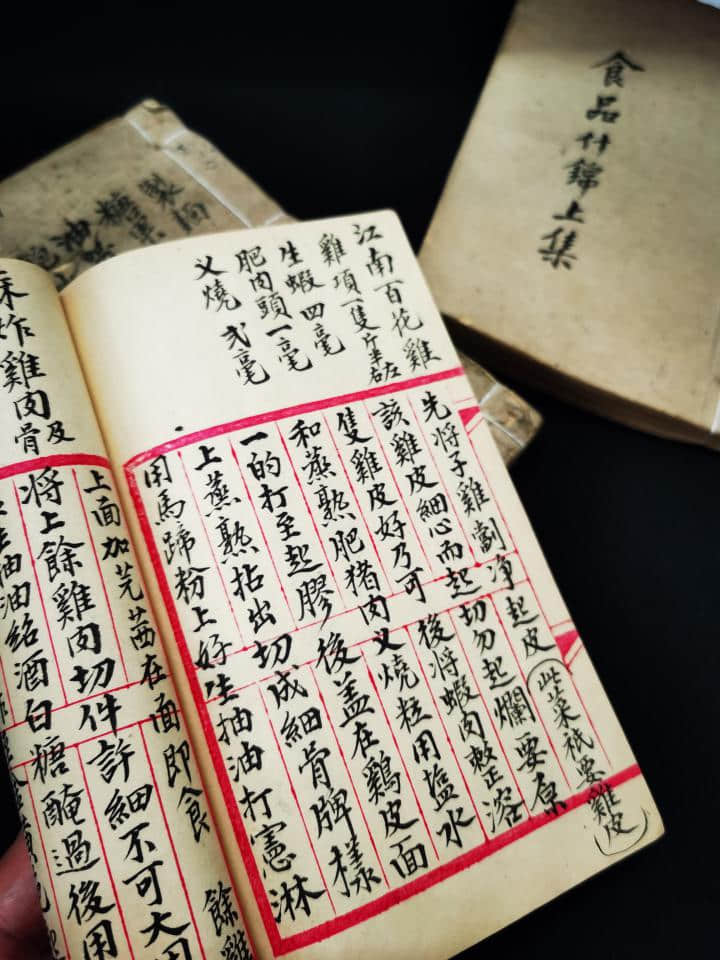 食品什錦上集
江南百花雞
雞項一隻斤半左右
生蝦四毫
肥肉頭一毫
乂燒弍毫
先将子雞劏净起皮(此菜祇要雞皮)
該雞皮細心而起切勿起爛要原
隻雞皮好乃可後将蝦肉攪溶
和蒸熟肥猪肉乂燒粒用塩水
一的打至起膠後盖在鷄皮面
上蒸熟拈出切成細骨牌樣
用馬蹄粉上好生抽油打憲淋
上面加芫茜在面即食 餘雞
将上餘雞肉切件許細不可大用
生抽油紹酒白糖醃過後用
炸雞肉及骨
製麵
糖菓
油